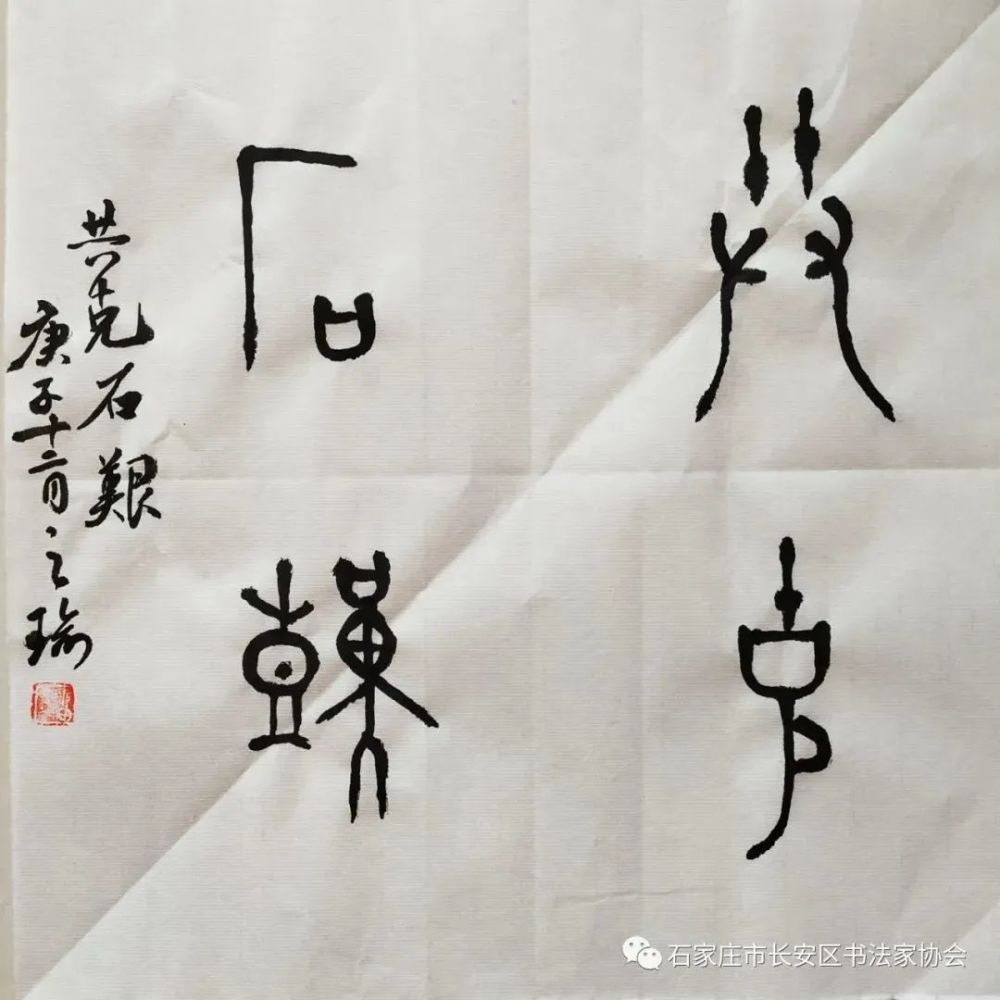 共克
石艱
共克石艱
庚子十二月之瑜
石家庄市长安区书法家协会